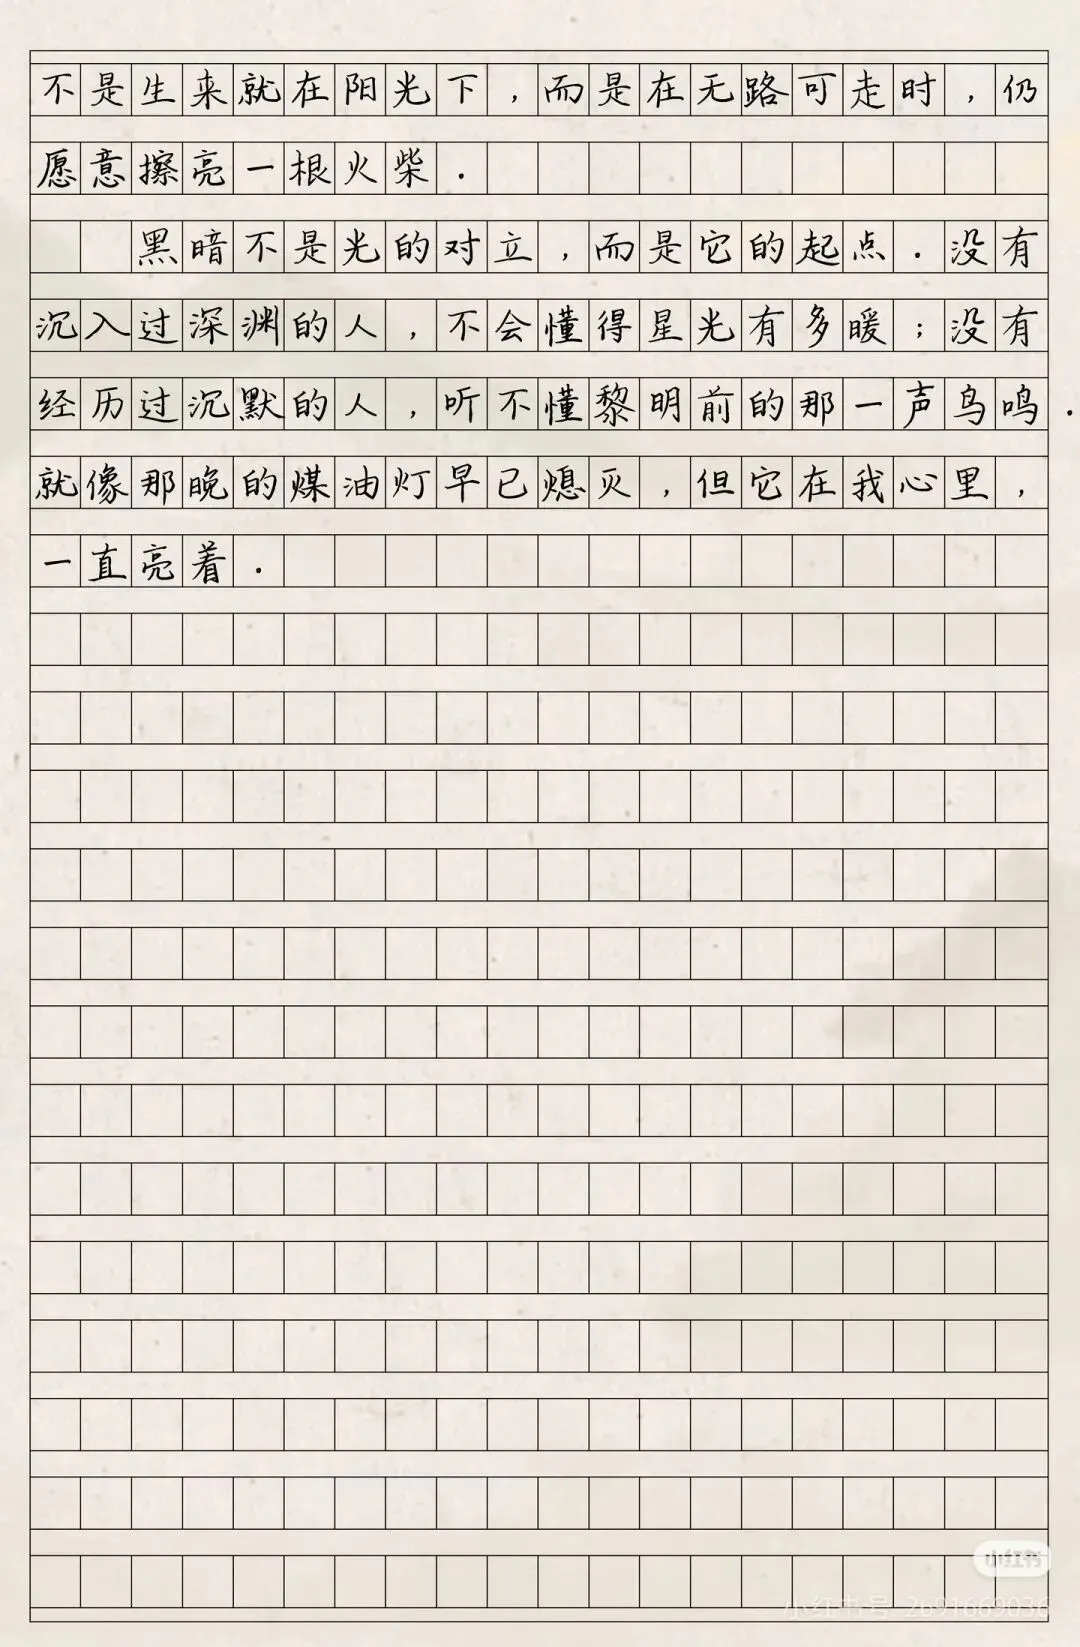 不是生来就在阳光下，而是在无路可走时，仍
愿意擦亮一根火柴．
黑暗不是光的对立，而是它的起点．没有
沉入过深渊的人，不会懂得星光有多暖；没有
经历过沉默的人，听不懂黎明前的那一声鸟鸣．
就像那晚的煤油灯早已熄灭，但它在我心里，
一直亮着．
小红书
小红书号 2691669036